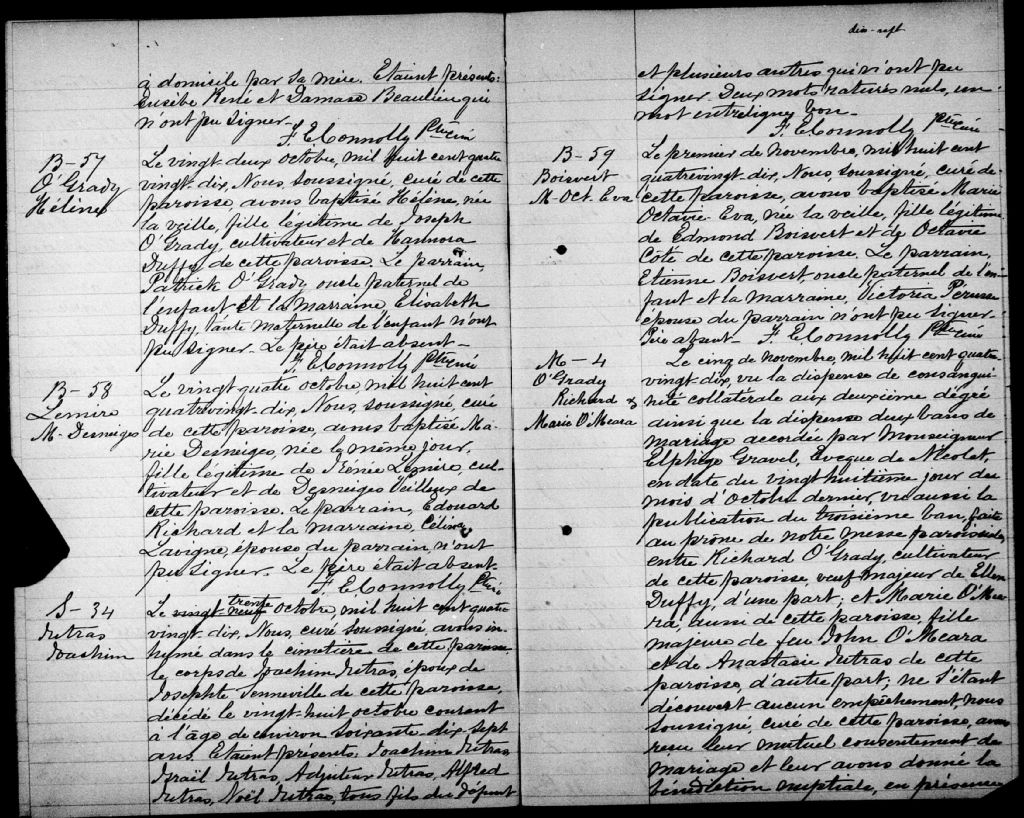 à domicile par sa mère. Etaient présents:
Eusèbe René et Damase Beaulieu qui
n'ont pu signer.
F. E. Connolly Ptre curé
B-57
O'Grady
Hélène
Le vingt-deux octobre, mil huit cent quatre
vingt-dix, Nous, soussigné, curé de cette
paroisse, avons baptisé Hélène, née
la veille, fille légitime de Joseph
O'Grady, cultivateur et de Hannora
Duffy de cette paroisse. Le parrain,
Patrick O'Grady oncle paternel de
l'enfant et la Marraine Elisabeth
Duffy, tante maternelle de l'enfant n'ont
pu signer. Le père était absent-
F. E. Connolly Ptre curé
B-58
Lemire
M-Desneiges
Le vingt quatre octobre, mil huit cent
quatrevingt-dix, Nous, soussigné, curé
de cette paroisse, avons baptisé Ma-
rie Desneiges, née le même jour,
fille légitime de Irénée Lemire, cul-
tivateur et de Desneiges Veilleux de
cette paroisse. Le parrain, Edouard
Richard et la marraine, Célina
Lavigne, épouse du parrain, n'ont
pu signer. Le père était absent.
F. E. Connolly, Ptre
S-34
Jutras
Joachim
Le vingt neuf trente octobre, mil huit cent quatre
vingt-dix, Nous, curé soussigné avons in-
humé dans le cimetière de cette paroisse,
le corps de Joachim Jutras, époux de
Josephte Jenneville de cette paroisse,
décédé le vingt-huit octobre courant
à l'âge de environ soixante-dix-sept
ans. Etaient présents, Joachim Jutras,
Israël Jutras, Adjuteur Jutras, Alfred
Jutras, Noël Jutras, tous fils du défunt
dix-sept
et plusieurs autres qui n'ont pu
signer. Deux mots raturés nuls, un
mot entreligne bon-
F. E. Connolly Ptre curé
B-59
Boisvert
M-Oct. Eva
Le premier de novembre, mil huit cent
quatrevingt-dix, Nous, soussigné, curé de
cette paroisse, avons baptisé Marie
Octavie-Eva, née la veille, fille légitime
de Edmond Boisvert et de Octavie
Côté de cette paroisse. Le parrain,
Etienne Boisvert, oncle paternel de l'en-
fant et la Marraine, Victoria Perusse
épouse du parrain n'ont pu signer-
Père absent- F. E. Connolly Ptre curé
M-4
O'Grady
Richard &
Marie O'Meara
Le cinq de novembre, mil huit cent quatre
vingt-dix, vu la dispense de consangui-
nité collatérale aux deuxième dégré
ainsi que la dispense deux bans de
mariage accordée par Monseigneur
Elphège Gravel, Evêque de Nicolet,
en date du vingt huitième jour du
mois d'Octobre dernier, vu aussi la
publication du troisième ban, faite
au prône de notre messe paroissiale,
entre Richard O'Grady, cultivateur
de cette paroisse, veuf majeur de Ellen
Duffy, d'une part; et Marie O'Mea-
ra, aussi de cette paroisse, fille
majeure de feu John O'Meara
et de Anastasie Jutras de cette
paroisse, d'autre part; ne s'étant
découvert aucun empêchement nous
soussigné, curé de cette paroisse, avons
reçu leur mutuel consentement de
mariage et leur avons donné la
bénédiction nuptiale, en présence